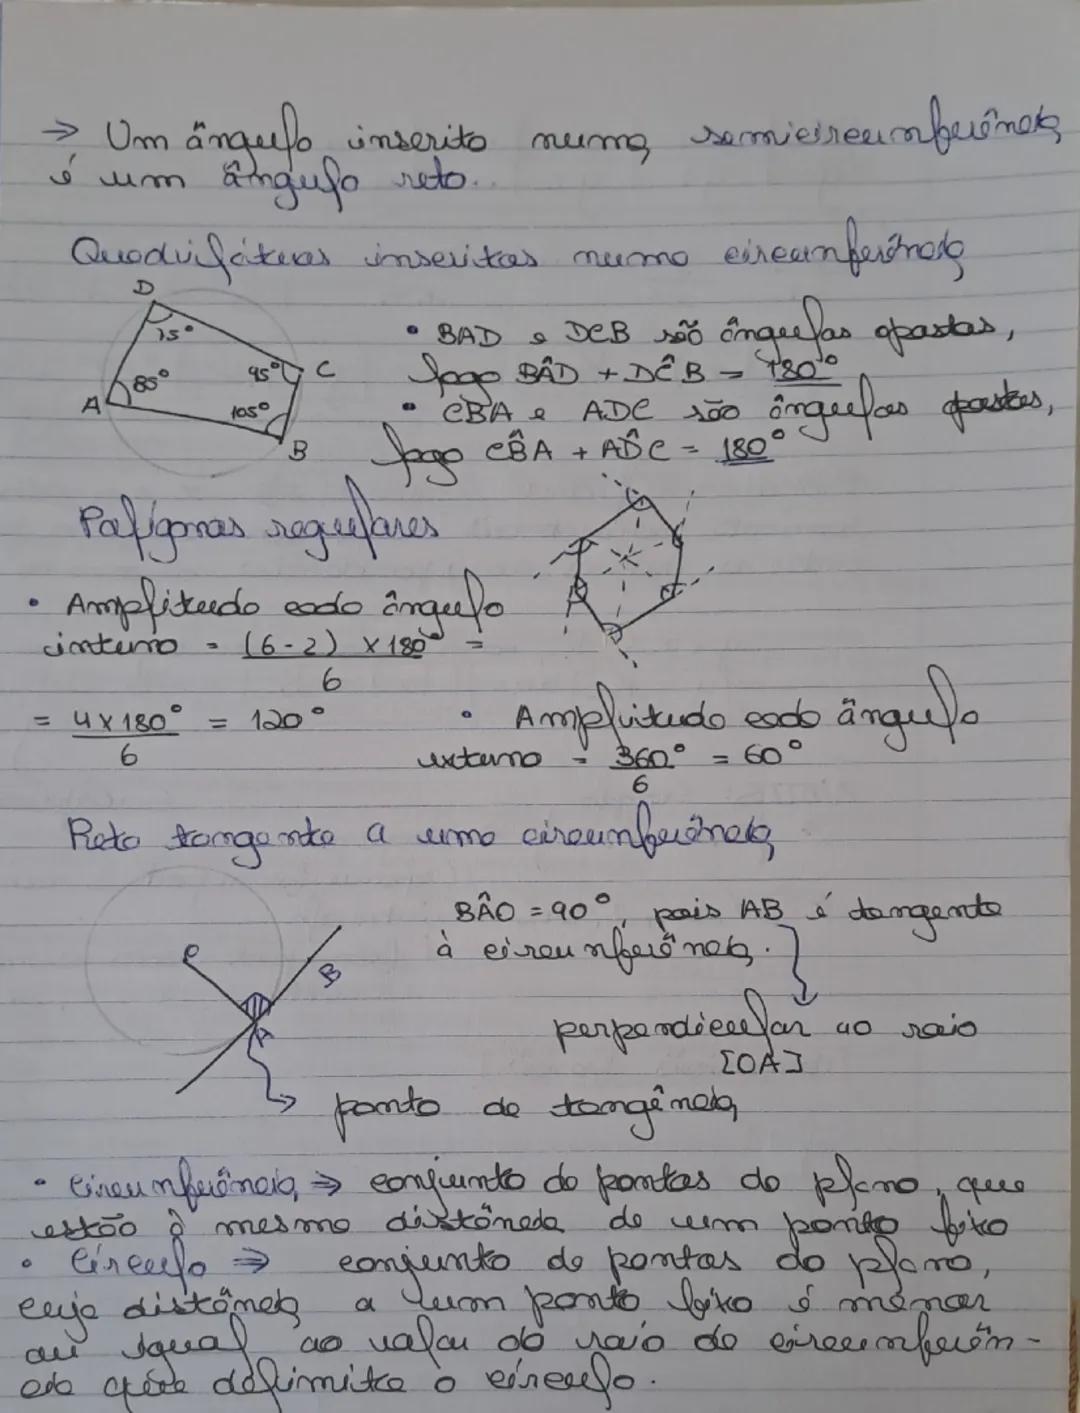 ⇒ Um ângulo inscrito numa semicircunferência
é um ângulo reto.
Quadriláteros inscritos numa circunferência
D
75°
95° C
85°
A
105°
B
• BAD e DCB são ângulos opostos,
logo BÂD + DĈB = 180°
• CBA e ADC são ângulos opostos,
logo CB̂A + AD̂C = 180°
Polígonos regulares
• Amplitude cada ângulo
interno = (6-2) x 180° =
6
= 4 x 180° = 120°
6
• Amplitude cada ângulo
externo = 360° = 60°
6
Reta tangente a uma circunferência
C
B
A
BÂO = 90°, pois AB é tangente
à circunferência.
perpendicular ao raio
[OA]
ponto de tangência
• Circunferência ⇒ conjunto de pontos do plano, que
estão à mesma distância de um ponto fixo
• Círculo ⇒ conjunto de pontos do plano,
cuja distância a um ponto fixo é menor
ou igual ao valor do raio da circunferên-
cia que delimita o círculo.